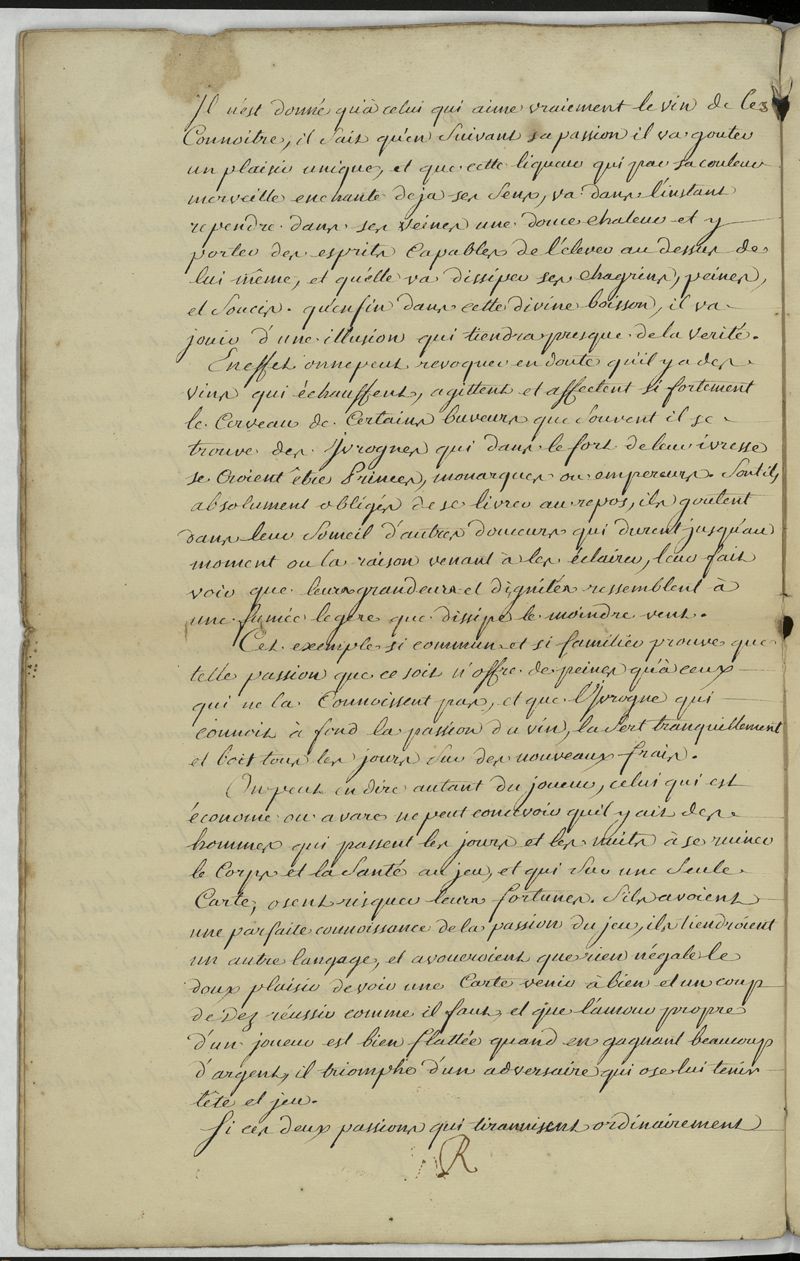 Il n'est donné qu'à celui qui aime vraiement le vin de les
Connoitre, il sait qu'en suivant sa passion il va gouter
un plaisir unique, et que cette liqueur qui par sa couleur
merveille enchante deja ses sens, va dans l'instant
rependre dans ses veines une douce chaleur et y
porter des esprits capables de l'élever au dessus de
lui même, et qu'elle va dissiper ses chagrins, peines,
et soucis. qu'enfin dans cette divine boisson, il va
jouir d'une illusion qui tiendra presque de la verité.
En effet on ne peut revoquer en doute qu'il y a des
vins qui échauffent, agittent et affectent si fortement
le Cerveau de Certains buveurs que souvent il se
trouve des Yvrognes qui dans le fort de leur ivresse
se croient être Princes, monarques ou empereurs. Sont ils
absolument obligés de se livrer au repos, ils goutent
dans leur someil d'autres douceurs qui durent jusqu'au
moment ou la raison venant à les éclairer, leur fait
voir que leurs grandeurs et dignités ressemblent à
une fumée legere que dissipe le moindre vent.
Cet exemple si commun et si familier prouve que
telle passion que ce soit n'offre de peines qu'à ceux
qui ne la Connoissent pas, et que l'Yvrogne qui
connoit à fond la passion du vin, la sert tranquillement
et boit tous les jours sur des nouveaux frais.
On peut en dire autant du joueur, celui qui est
économe ou avare ne peut concevoir qu'il y ait des
hommes qui passent les jours et les nuits à se ruiner
le Corps et la Santé au jeu, et qui sur une seule
Carte, osent risquer leurs fortunes. S'ils avoient
une parfaite connoissance de la passion du jeu, ils tiendroient
un autre langage, et avoueroient que rien n'égale le
doux plaisir de voir une Carte venir à bien et un coup
de Dez réussir comme il faut, et que l'amour propre
d'un joueur est bien flattée quand en gagnant beaucoup
d'argent, il triomphe d'un adversaire qui ose lui tenir
tête et jeu.
Si ces deux passions qui tirannisent ordinairement
R